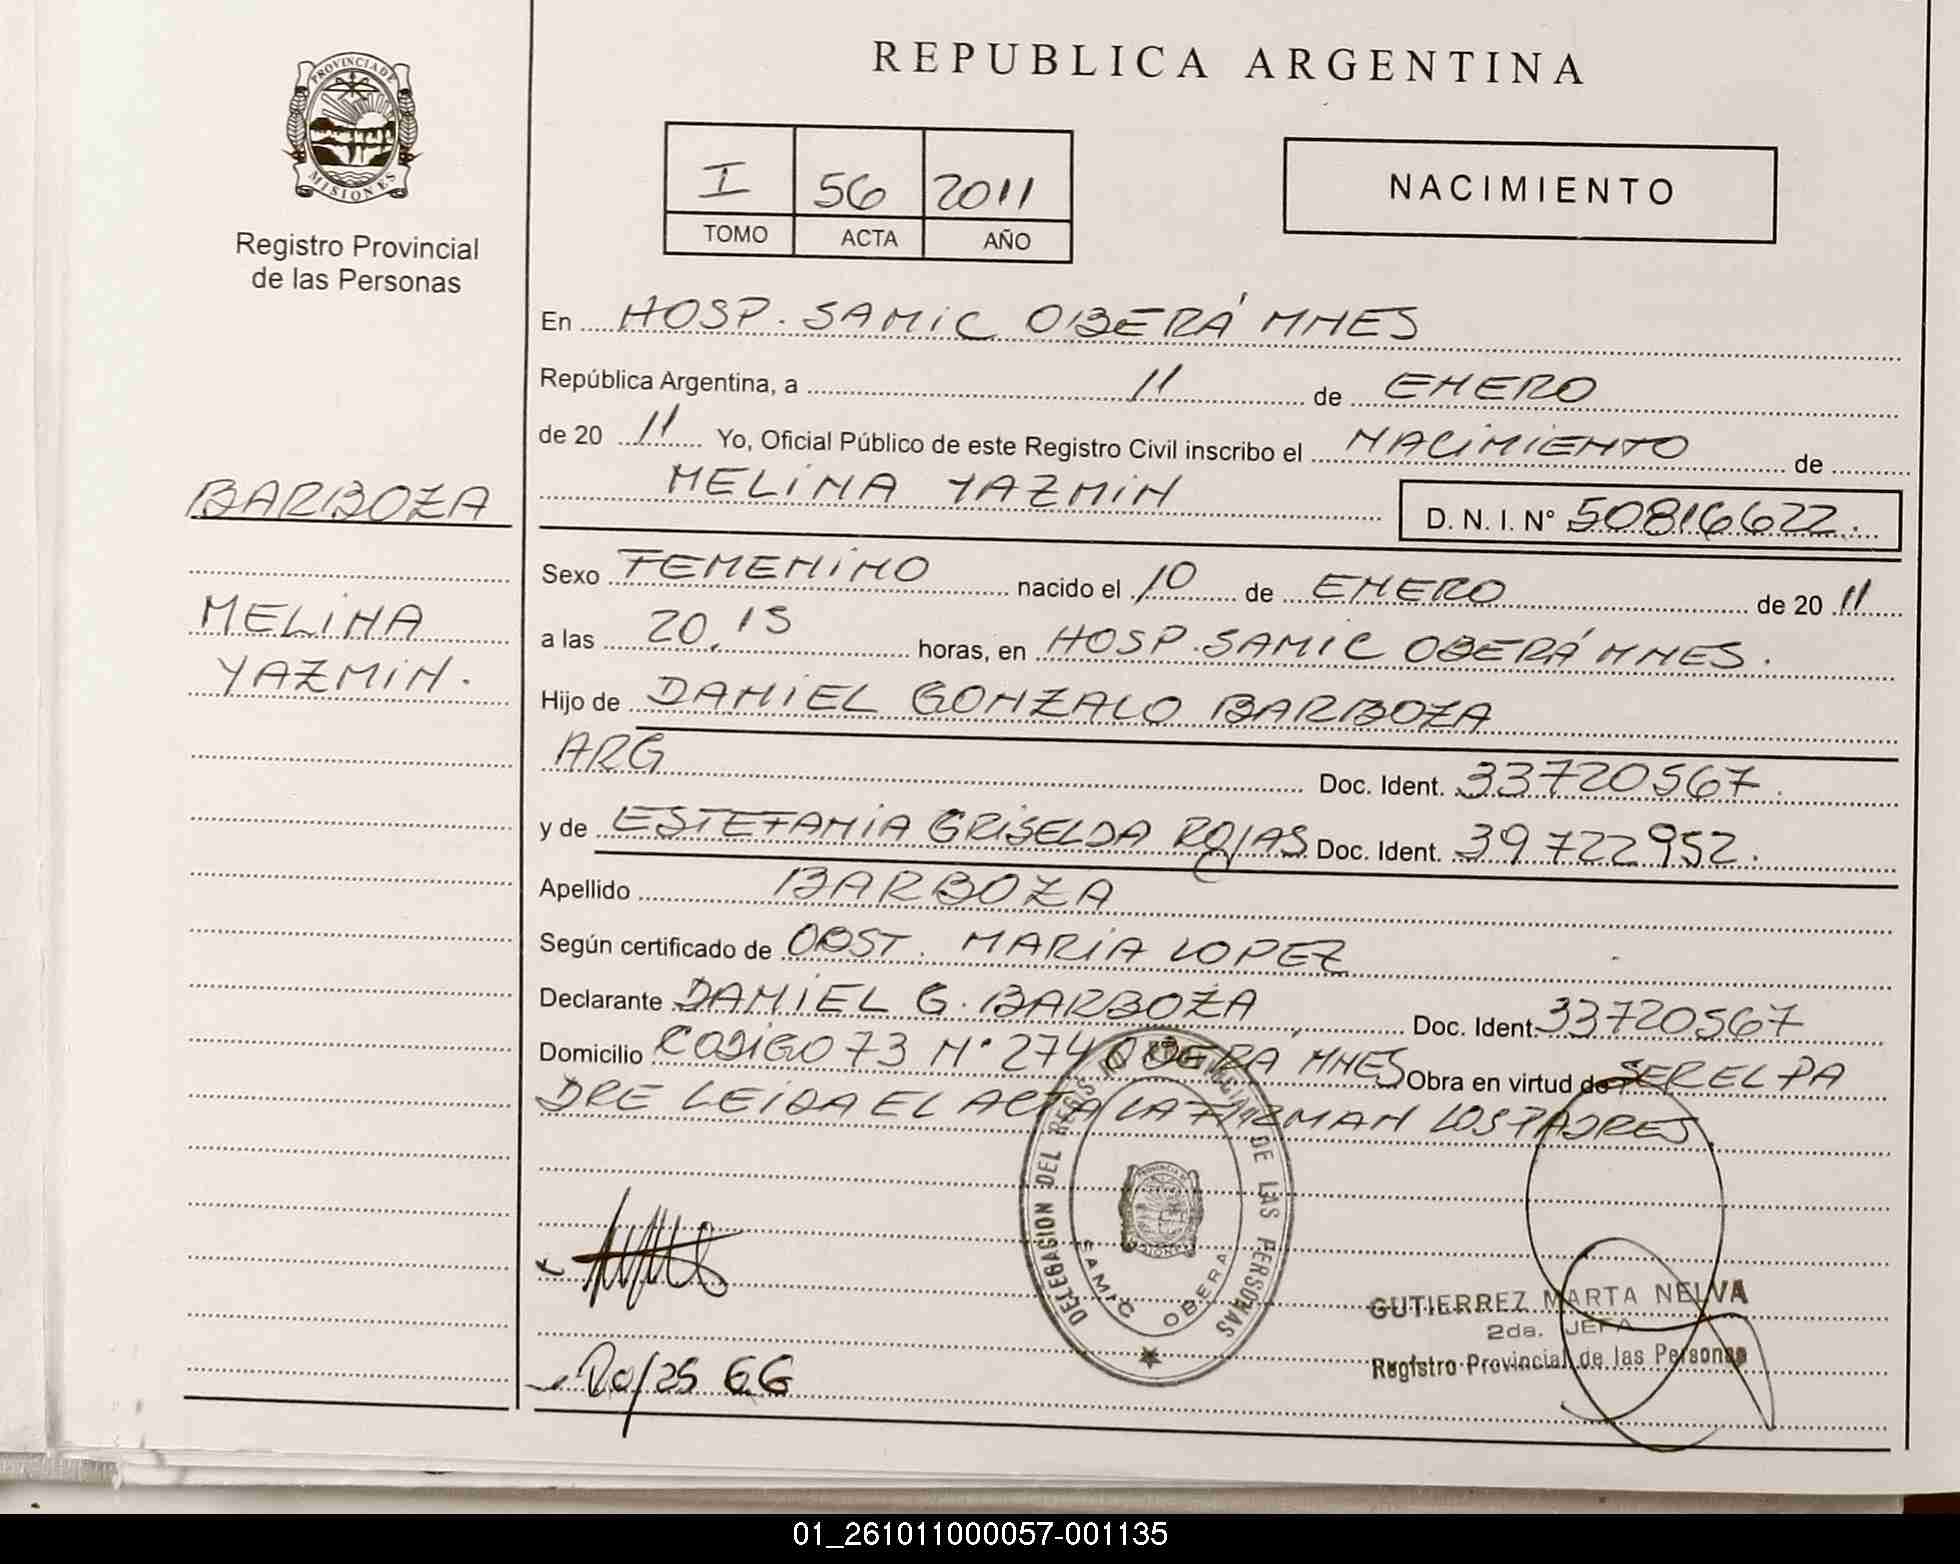 REPUBLICA ARGENTINA
PROVINCIA DE
MISIONES
Registro Provincial
de las Personas
I 56 2011
TOMO ACTA AÑO
NACIMIENTO
En HOSP. SAMIC OBERÁ MNES
República Argentina, a 11 de ENERO
de 20 11 Yo, Oficial Público de este Registro Civil inscribo el NACIMIENTO de
BARBOZA
MELINA YAZMIN
D. N. I. N° 50816622.
Sexo FEMENINO nacido el 10 de ENERO de 20 11
MELINA
YAZMIN.
a las 20,15 horas, en HOSP. SAMIC OBERÁ MNES.
Hijo de DANIEL GONZALO BARBOZA
ARG Doc. Ident. 33720567.
y de ESTEFANIA GRISELDA ROJAS Doc. Ident. 39722952.
Apellido BARBOZA
Según certificado de OBST. MARIA LOPEZ
Declarante DANIEL G. BARBOZA Doc. Ident. 33720567
Domicilio CODIGO 73 N° 274 OBERÁ MNES Obra en virtud de SER EL PA
DRE LEIDA EL ACTA LA FIRMAN LOS PADRES.
DELEGASION DEL REGISTRO PROVINCIAL DE LAS PERSONAS
SAMIC OBERA
GUTIERREZ MARTA NELVA
2da. JEFA
Registro Provincial de las Personas
01_261011000057-001135